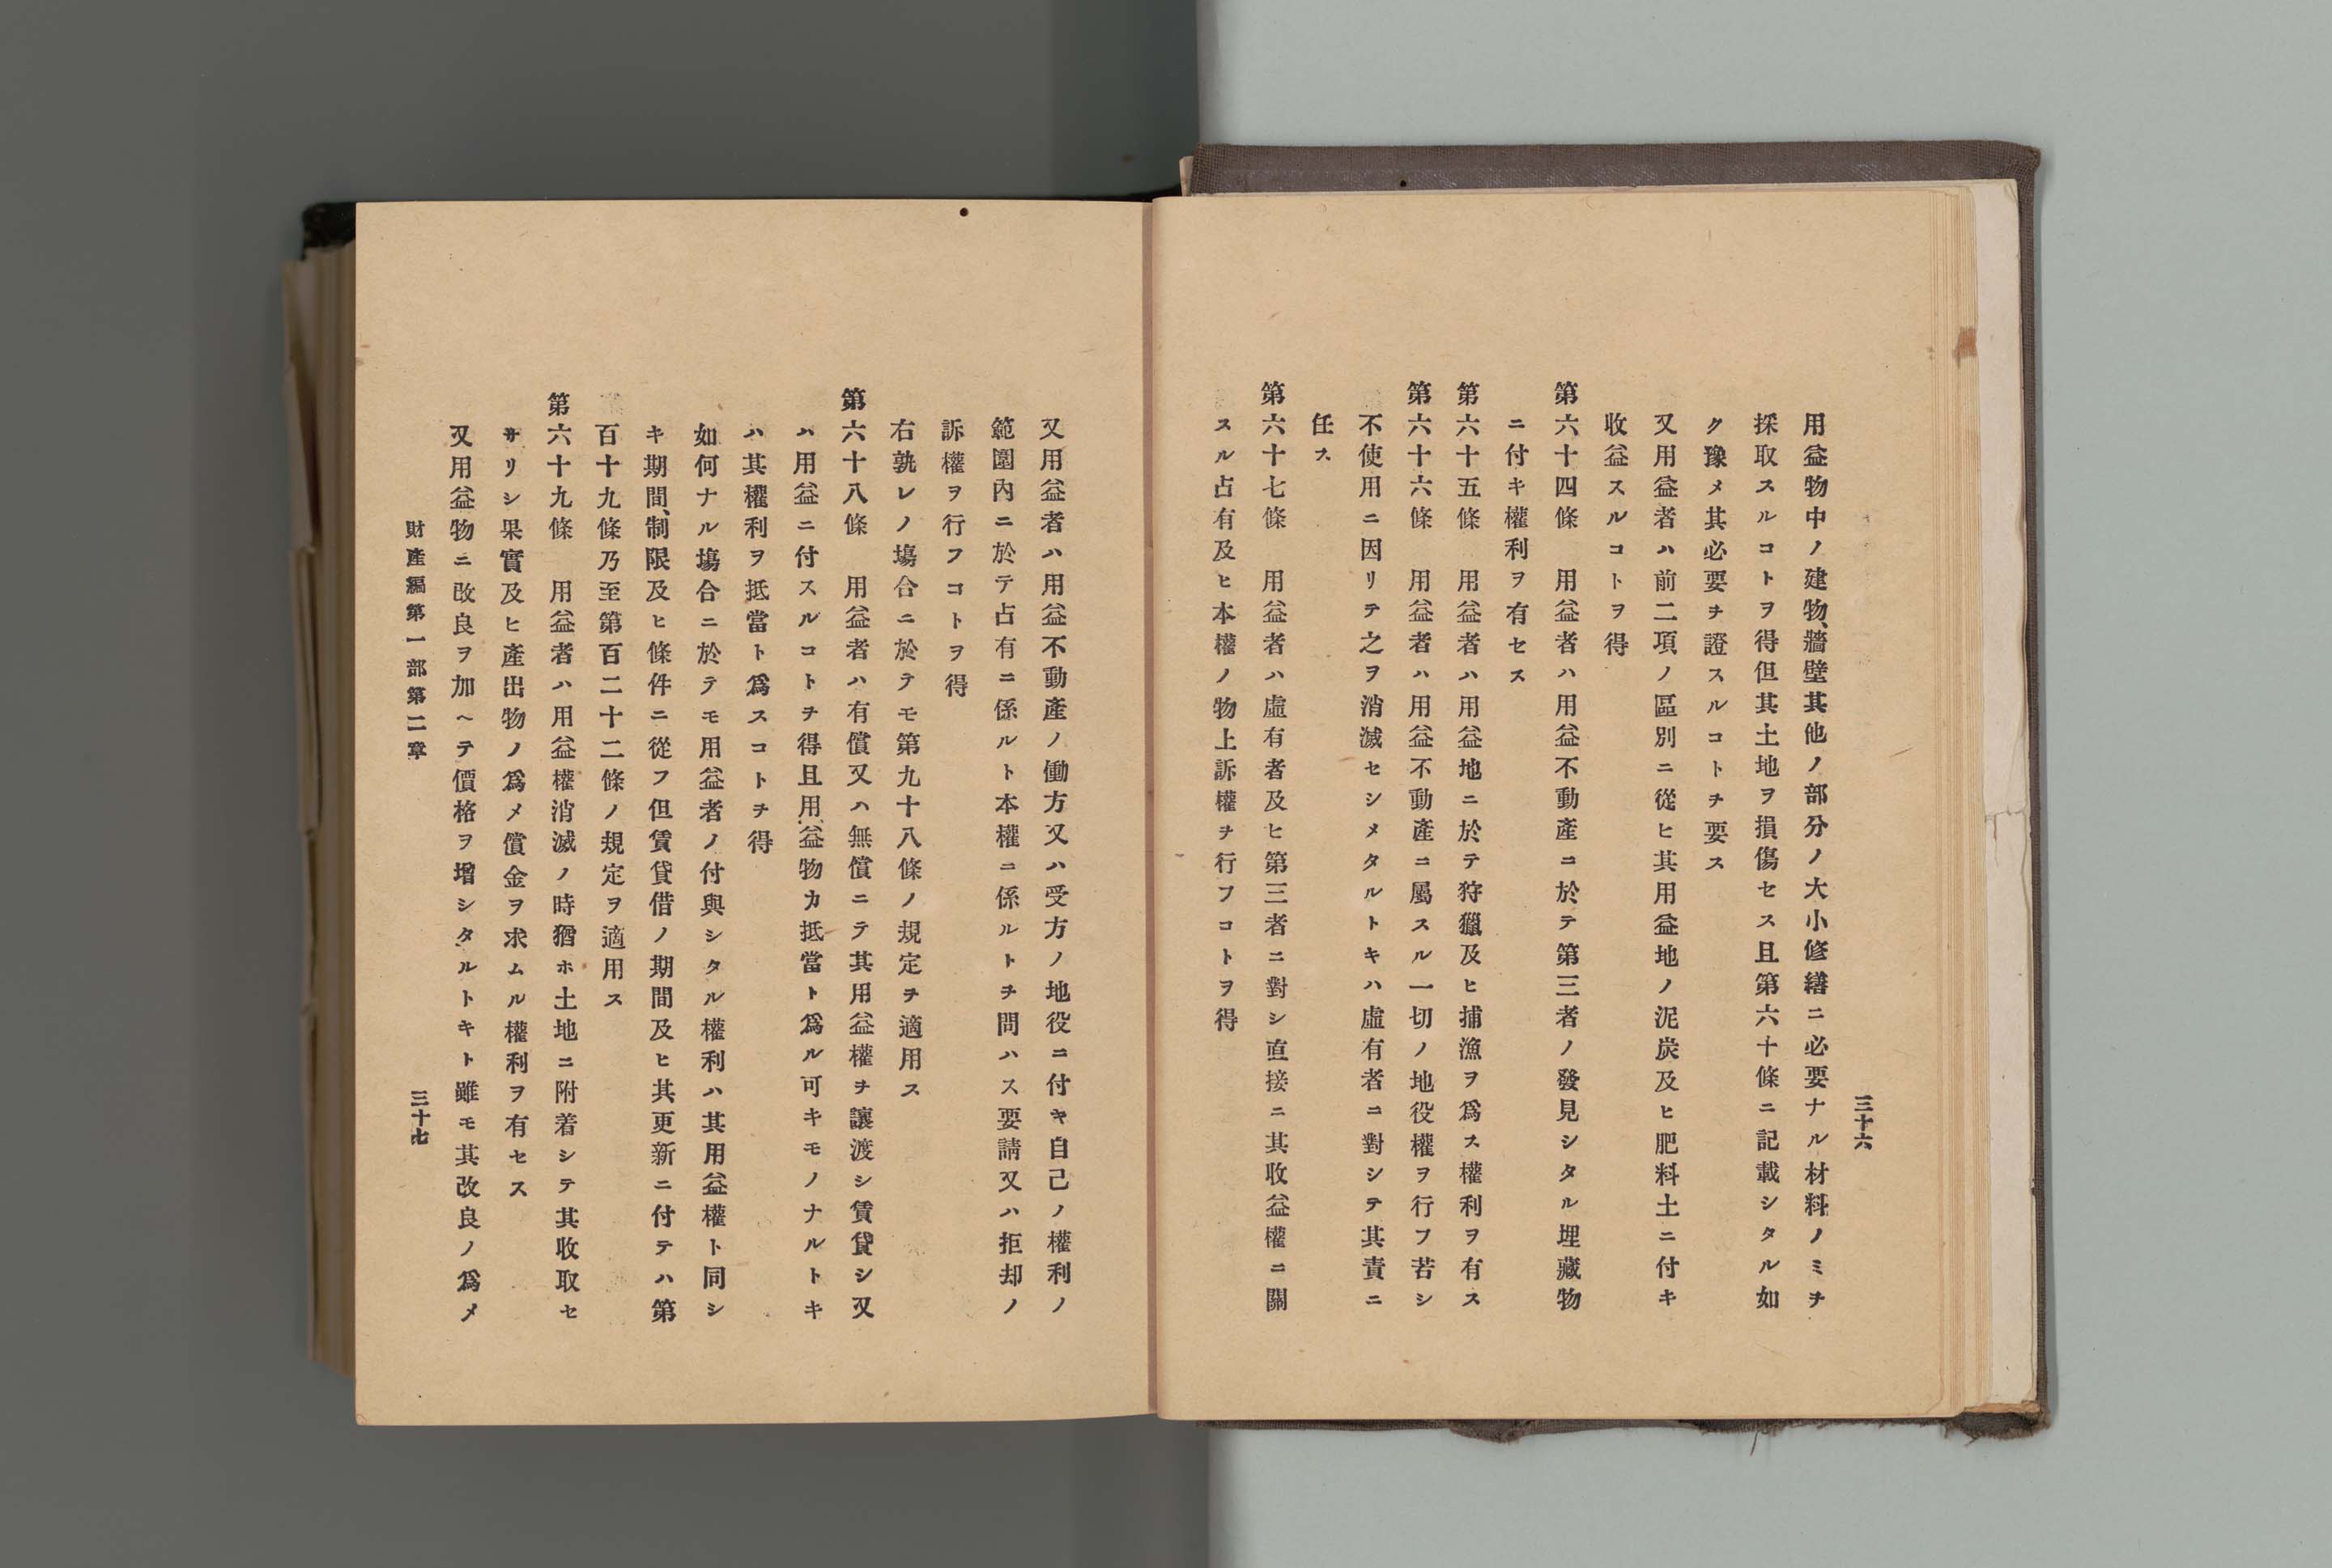 三十六
用益物中ノ建物、牆壁其他ノ部分ノ大小修繕ニ必要ナル材料ノミヲ
採取スルコトヲ得但其土地ヲ損傷セス且第六十條ニ記載シタル如
ク豫メ其必要ヲ證スルコトヲ要ス
又用益者ハ前二項ノ區別ニ從ヒ其用益地ノ泥炭及ヒ肥料土ニ付キ
收益スルコトヲ得
第六十四條　用益者ハ用益不動產ニ於テ第三者ノ發見シタル埋藏物
ニ付キ權利ヲ有セス
第六十五條　用益者ハ用益地ニ於テ狩獵及ヒ捕漁ヲ爲ス權利ヲ有ス
第六十六條　用益者ハ用益不動產ニ屬スル一切ノ地役權ヲ行フ若シ
不使用ニ因リテ之ヲ消滅セシメタルトキハ虛有者ニ對シテ其責ニ
任ス
第六十七條　用益者ハ虛有者及ヒ第三者ニ對シ直接ニ其收益權ニ關
スル占有及ヒ本權ノ物上訴權ヲ行フコトヲ得
又用益者ハ用益不動產ノ働方又ハ受方ノ地役ニ付キ自己ノ權利ノ
範圍內ニ於テ占有ニ係ルト本權ニ係ルトヲ問ハス要請又ハ拒却ノ
訴權ヲ行フコトヲ得
右孰レノ塲合ニ於テモ第九十八條ノ規定ヲ適用ス
第六十八條　用益者ハ有償又ハ無償ニテ其用益權ヲ讓渡シ賃貸シ又
ハ用益ニ付スルコトヲ得且用益物カ抵當ト爲ル可キモノナルトキ
ハ其權利ヲ抵當ト爲スコトヲ得
如何ナル塲合ニ於テモ用益者ノ付與シタル權利ハ其用益權ト同シ
キ期間、制限及ヒ條件ニ從フ但賃貸借ノ期間及ヒ其更新ニ付テハ第
百十九條乃至第百二十二條ノ規定ヲ適用ス
第六十九條　用益者ハ用益權消滅ノ時猶ホ土地ニ附着シテ其收取セ
サリシ果實及ヒ產出物ノ爲メ償金ヲ求ムル權利ヲ有セス
又用益物ニ改良ヲ加ヘテ價格ヲ增シタルトキト雖モ其改良ノ爲メ
財產編第一部第二章　三十七